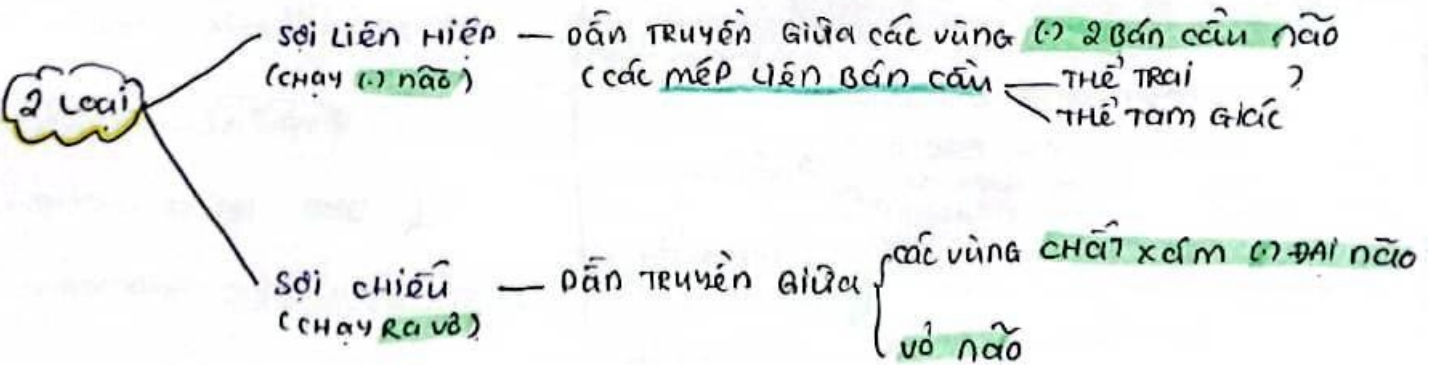 2 Loại
Sợi Liên Hiệp — Dẫn Truyền Giữa các vùng (.) 2 Bán cầu não
(chạy (.) não) (các mép liên Bán cầu — Thể Trai )
Thể Tam Giác
Sợi chiếu — Dẫn Truyền Giữa { các vùng chất xám (.) Đại não
(chạy Ra vỏ)
vỏ não